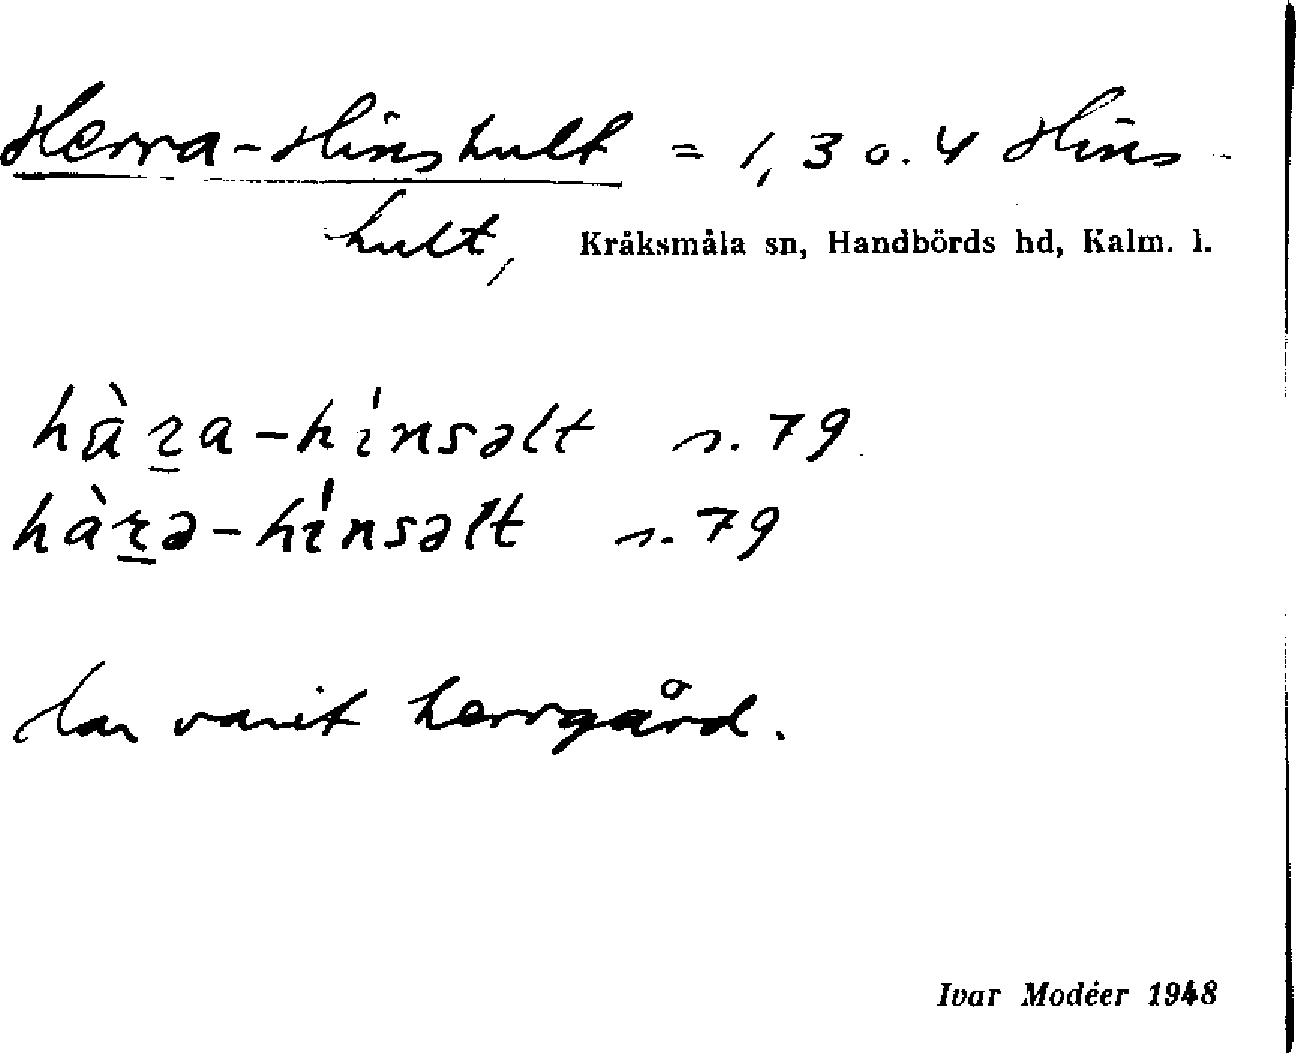 Herra-Hinshult = 1, 3 o. 4 Hins-
hult, Kråksmåla sn, Handbörds hd, Kalm. l.
hàra-hinsəlt s. 79
hàrə-hinsəlt s. 79
har varit herrgård.
Ivar Modéer 1948